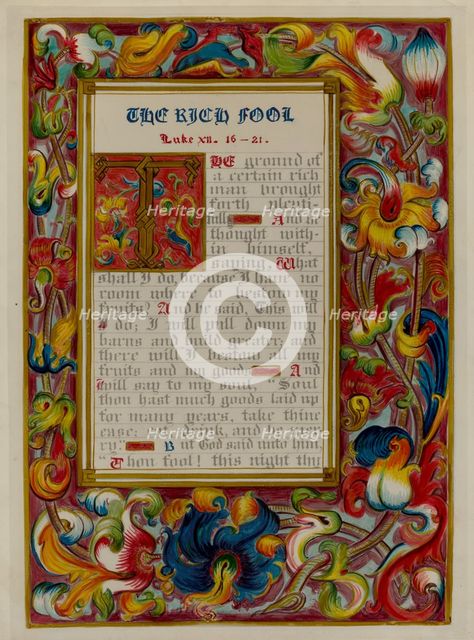 THE RICH FOOL
Luke XII. 16–21.
THE ground of
a certain rich
man brought
forth plenti-
And he
thought with-
in himself,
saying, What
shall I do, because I have no
room to
And he said, This will
I do; I will my
barns and
there will I
fruits and my goods. And
I will say to my Soul "Soul
thou hast much goods laid up
for many years, take thine
ease; drink, and
ry." But God said unto him,
Thou fool! this night thy
Heritage
Heritage
Heritage
Heritage
Heritage
Heritage
©